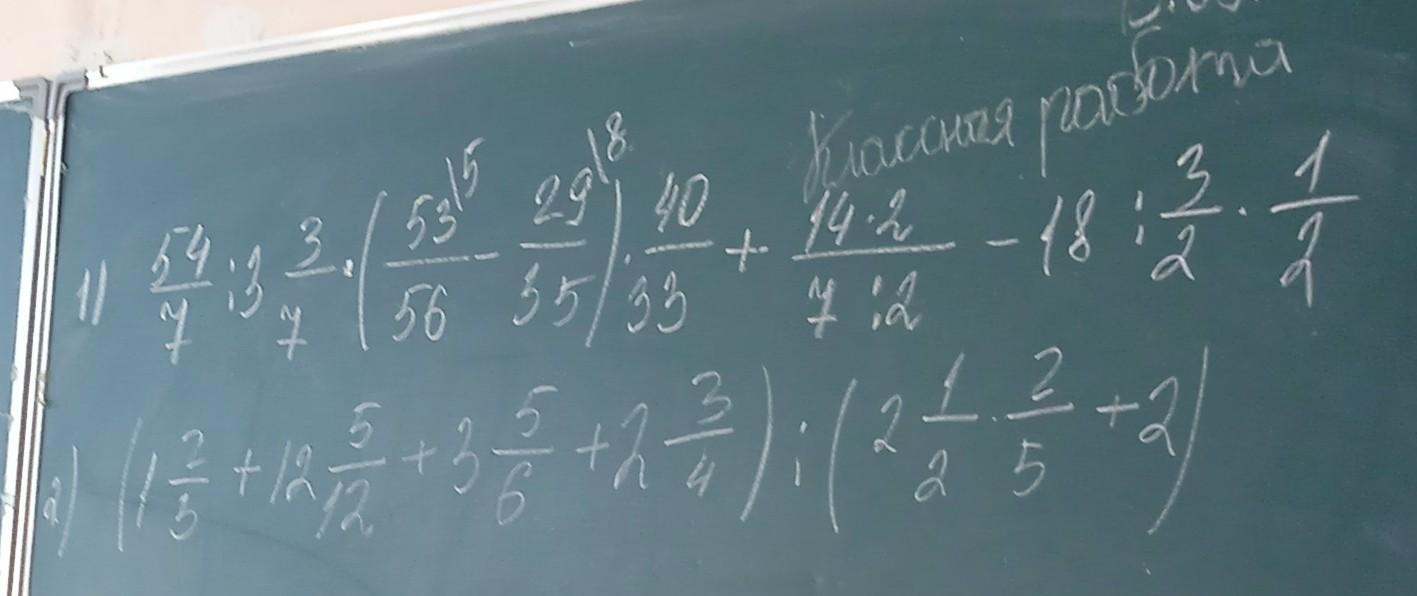 Классная работа
1) 54/7 : 3 3/7 · (53\5/56 - 29\8/35) · 40/33 + 14·2/7:2 - 18 : 3/2 · 1/2
2) (1 2/3 + 12 5/12 + 3 5/6 + 2 3/4) : (2 1/2 · 2/5 + 2)